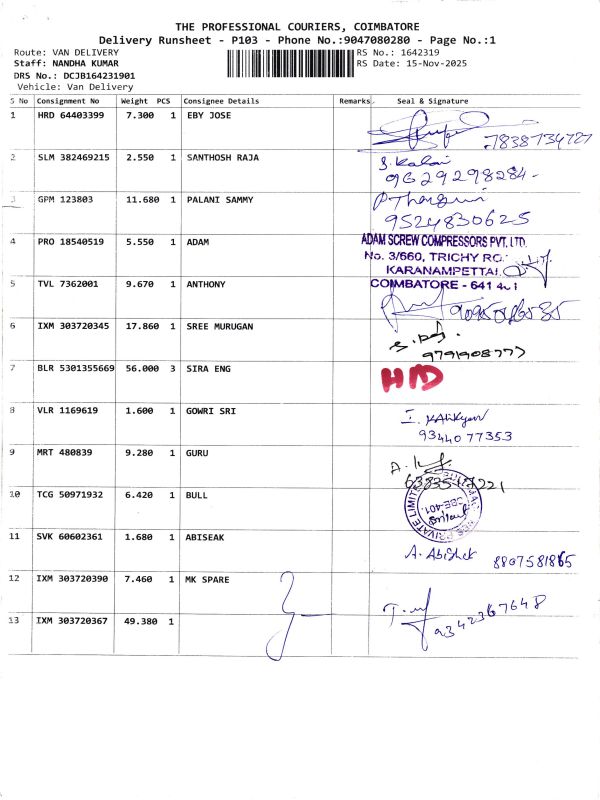 THE PROFESSIONAL COURIERS, COIMBATORE
Delivery Runsheet - P103 - Phone No.:9047080280 - Page No.:1
Route: VAN DELIVERY RS No.: 1642319
Staff: NANDHA KUMAR RS Date: 15-Nov-2025
DRS No.: DCJB164231901
Vehicle: Van Delivery
S No Consignment No Weight PCS Consignee Details Remarks Seal & Signature
1 HRD 64403399 7.300 1 EBY JOSE
7838734727
2 SLM 382469215 2.550 1 SANTHOSH RAJA S. Kalai
9629298284-
3 GPM 123803 11.680 1 PALANI SAMMY
9524830625
4 PRO 18540519 5.550 1 ADAM ADAM SCREW COMPRESSORS PVT. LTD.
No. 3/660, TRICHY RO
KARANAMPETTAI
5 TVL 7362001 9.670 1 ANTHONY COIMBATORE - 641 401
6 IXM 303720345 17.860 1 SREE MURUGAN
9791908777
7 BLR 5301355669 56.000 3 SIRA ENG HND
8 VLR 1169619 1.600 1 GOWRI SRI
9344077353
9 MRT 480839 9.280 1 GURU
10 TCG 50971932 6.420 1 BULL
PRIVATE LIMITED
CBE-401.
11 SVK 60602361 1.680 1 ABISEAK A. Abishek 8807581865
12 IXM 303720390 7.460 1 MK SPARE
9342367648
13 IXM 303720367 49.380 1